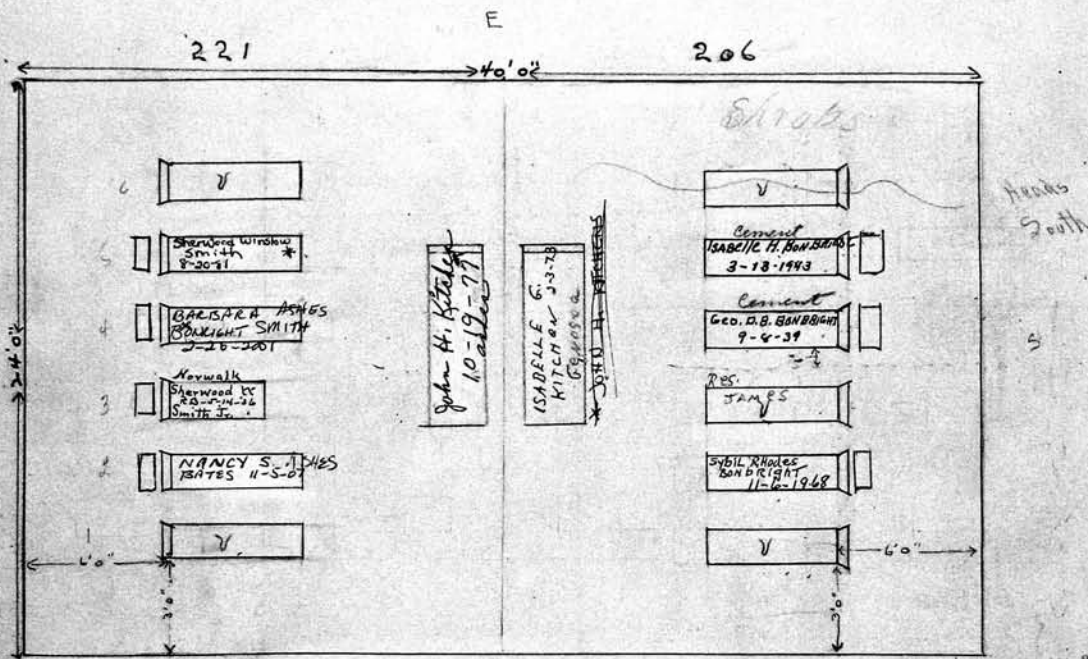 E
221
206
40'0"
24'0"
Shrubs
Heads
South
S
6
V
5
Sherwood Winslow
Smith *
8-20-81
4
BARBARA ASHES
BONBRIGHT SMITH
2-20-2001
3
Norwalk
Sherwood
Smith Jr.
2
NANCY S. ASHES
BATES 11-5-07
1
V
6'0"
3'0"
John H. Kitchen
10-19-77
ashes
ISABELLE G.
KITCHEN 2-3-73
* JOHN H. KITCHENS
V
Cement
ISABELLE H. BONBRIGHT
3-13-1943
Cement
GEO. D. B. BONBRIGHT
9-8-39
Res.
JAMES
V
SYBIL RHODES
BONBRIGHT
11-6-1968
V
6'0"
3'0"